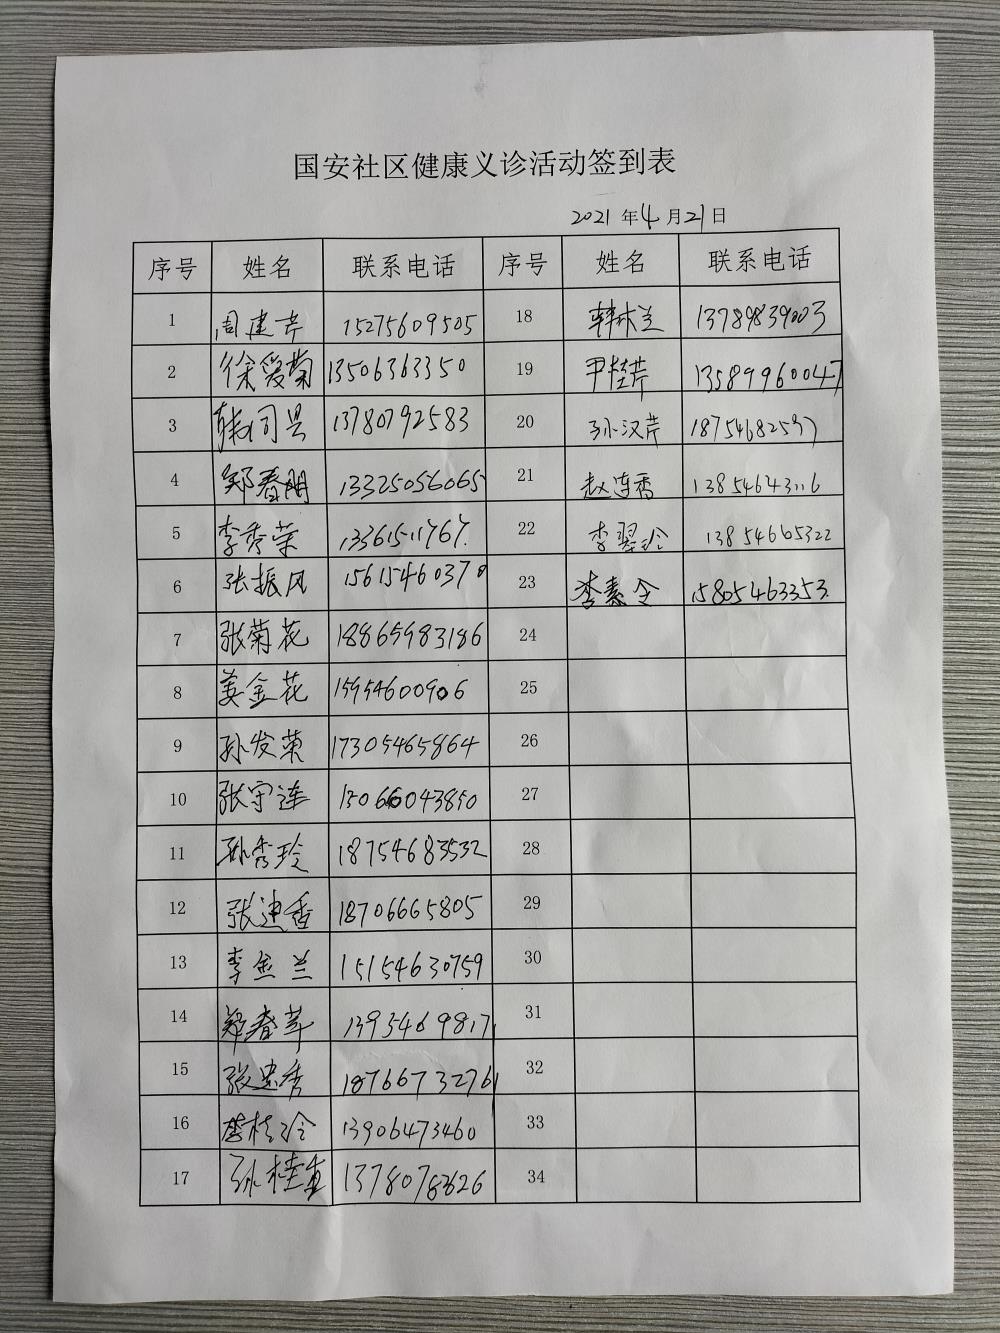 国安社区健康义诊活动签到表
2021年4月21日
序号 姓名 联系电话 序号 姓名 联系电话
1 周建芹 15275609505 18 韩林兰 13789839003
2 徐爱菊 13506363350 19 尹桂芹 13589960047
3 韩司县 13780792583 20 孙汉芹 18754682597
4 郑春明 13325056065 21 赵连香 13854643116
5 李秀荣 22 李翠玲 13854665322
6 张振风 15615460370 23 李素令 15805463353
7 张菊花 18865983186 24
8 姜金花 15954600906 25
9 孙发荣 17305465864 26
10 张守连 13066043850 27
11 孙秀玲 18754683532 28
12 张迎香 18706665805 29
13 李金兰 15154630759 30
14 郑春苹 13954698171 31
15 张忠秀 18766732761 32
16 李桂玲 13906473460 33
17 孙桂 13780783626 34